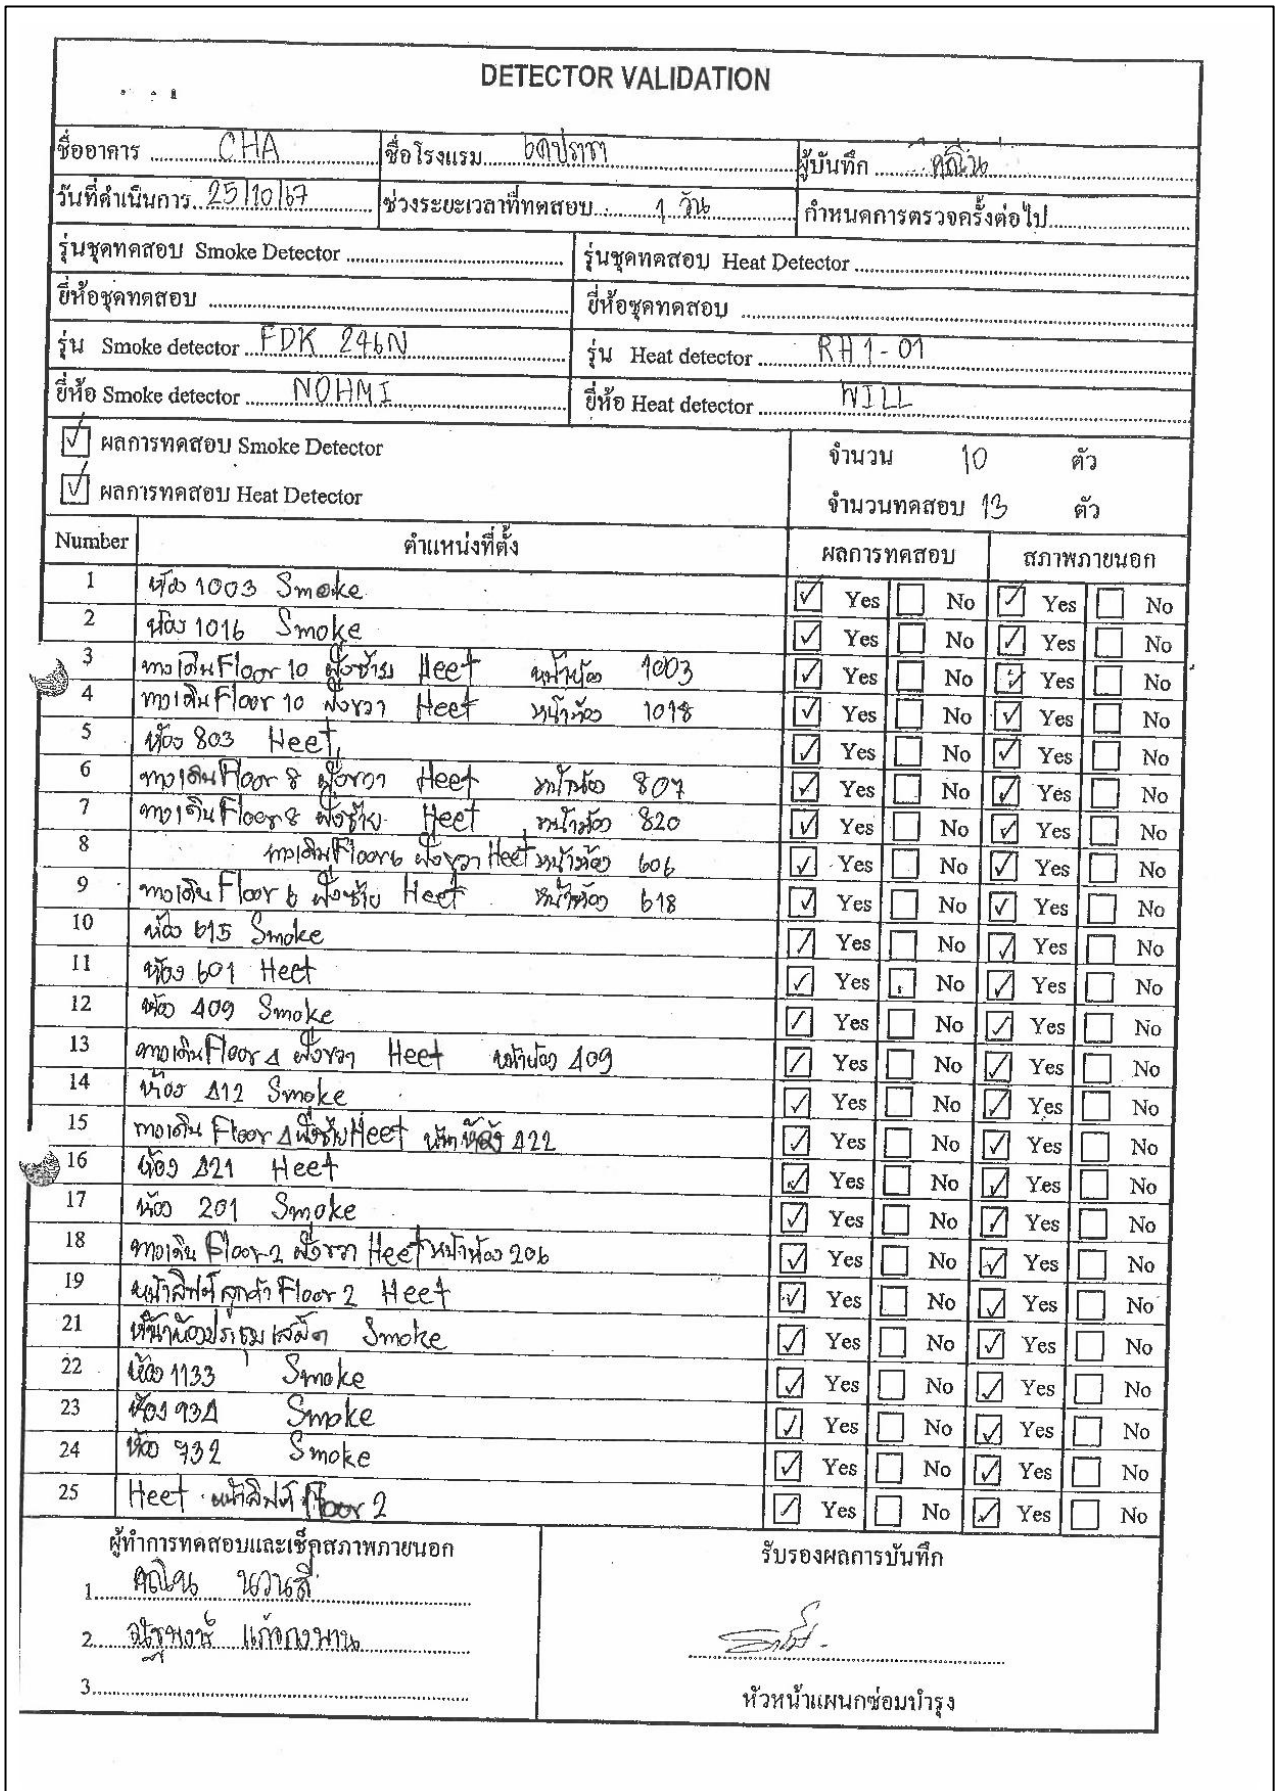 DETECTOR VALIDATION
ชื่ออาคาร CHA ชื่อโรงแรม ผู้บันทึก
วันที่ดำเนินการ 25/10/67 ช่วงระยะเวลาที่ทดสอบ 1 วัน กำหนดการตรวจครั้งต่อไป
รุ่นชุดทดสอบ Smoke Detector รุ่นชุดทดสอบ Heat Detector
ยี่ห้อชุดทดสอบ ยี่ห้อชุดทดสอบ
รุ่น Smoke detector FDK 246N รุ่น Heat detector RH1-01
ยี่ห้อ Smoke detector NOHMI ยี่ห้อ Heat detector WILL
ผลการทดสอบ Smoke Detector จำนวน 10 ตัว
ผลการทดสอบ Heat Detector จำนวนทดสอบ 13 ตัว
Number ตำแหน่งที่ตั้ง ผลการทดสอบ สภาพภายนอก
1 ห้อง 1003 Smoke Yes No Yes No
2 ห้อง 1016 Smoke Yes No Yes No
3 ทางเดิน Floor 10 ฝั่งซ้าย Heet หน้าห้อง 1003 Yes No Yes No
4 ทางเดิน Floor 10 ฝั่งขวา Heet หน้าห้อง 1018 Yes No Yes No
5 ห้อง 803 Heet Yes No Yes No
6 ทางเดิน Floor 8 ฝั่งขวา Heet หน้าห้อง 807 Yes No Yes No
7 ทางเดิน Floor 8 ฝั่งซ้าย Heet หน้าห้อง 820 Yes No Yes No
8 ทางเดิน Floor 6 ฝั่งขวา Heet หน้าห้อง 606 Yes No Yes No
9 ทางเดิน Floor 6 ฝั่งซ้าย Heet หน้าห้อง 618 Yes No Yes No
10 ห้อง 615 Smoke Yes No Yes No
11 ห้อง 601 Heet Yes No Yes No
12 ห้อง 409 Smoke Yes No Yes No
13 ทางเดิน Floor 4 ฝั่งขวา Heet หน้าห้อง 409 Yes No Yes No
14 ห้อง 412 Smoke Yes No Yes No
15 ทางเดิน Floor 4 ฝั่งซ้าย Heet หน้าห้อง 422 Yes No Yes No
16 ห้อง 421 Heet Yes No Yes No
17 ห้อง 201 Smoke Yes No Yes No
18 ทางเดิน Floor 2 ฝั่งขวา Heet หน้าห้อง 206 Yes No Yes No
19 หน้าลิฟท์ลูกค้า Floor 2 Heet Yes No Yes No
21 หน้าห้องประชุมเสม็ด Smoke Yes No Yes No
22 ห้อง 1133 Smoke Yes No Yes No
23 ห้อง 934 Smoke Yes No Yes No
24 ห้อง 732 Smoke Yes No Yes No
25 Heet หน้าลิฟท์ Floor 2 Yes No Yes No
ผู้ทำการทดสอบและเช็คสภาพภายนอก รับรองผลการบันทึก
1. นวนสี
2. ณัฐพงษ์
3.
หัวหน้าแผนกซ่อมบำรุง